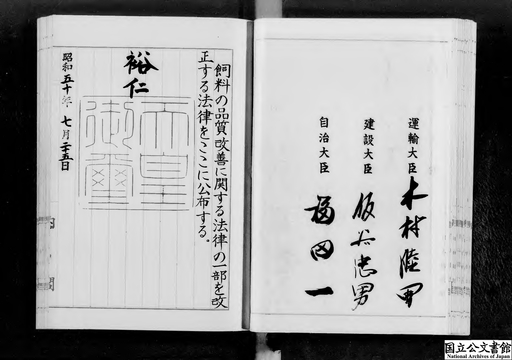 運輸大臣 木村睦男
建設大臣 仮谷忠男
自治大臣 福田一
飼料の品質改善に関する法律の一部を改
正する法律をここに公布する。
裕仁
天皇
御璽
昭和五十年 七月二十五日
国立公文書館
National Archives of Japan